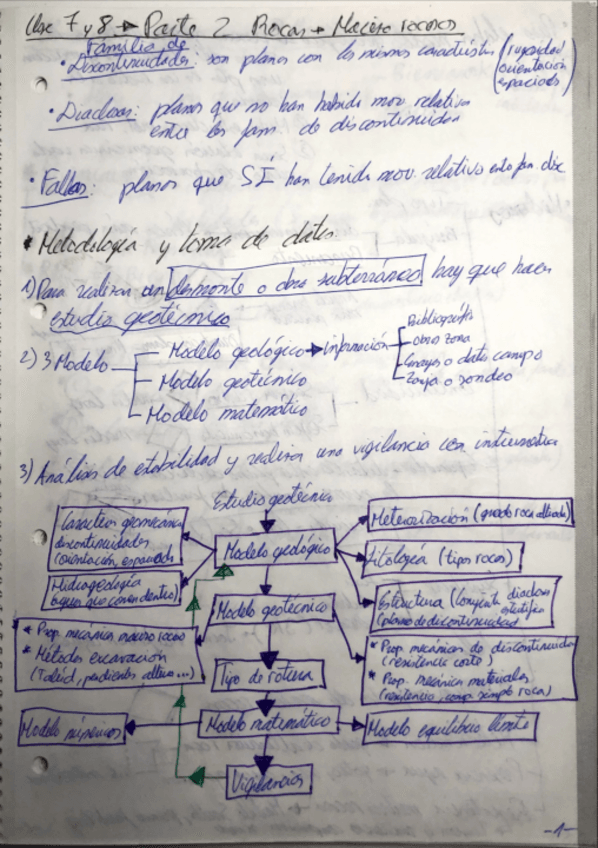 Clase 7 y 8 → Parte 2 Rocas → Macizo rocoso
Familia de
• Discontinuidades: son planos con las mismas características (rugosidad
orientación
espaciado)
• Diaclasas: planos que no han habido mov. relativo
entre las fam. de discontinuidad
• Fallas: planos que SÍ han tenido mov. relativo entre fam. disc
* Metodología y toma de datos.
1) Para realizar un desmonte o obra subterránea hay que hacer
estudio geotécnico
2) 3 Modelo
Modelo geológico → información
Bibliografía
obras zona
Ensayos o datos campo
Zanja o sondeo
Modelo geotécnico
Modelo matemático
3) Análisis de estabilidad y realizar una vigilancia con
Estudio geotécnico
Caracter. geomecánica
discontinuidades
(orientación, espaciado
Modelo geológico
Meteorización (grado roca alterada)
Litología (tipos rocas)
Hidrogeología
(agua que corre dentro)
Estructura (Conjunto diaclasas
(planos de discontinuidad)
Modelo geotécnico
* Prop. mecánica macizo rocoso
* Métodos excavación
(Talud, pendientes, altura...)
* Prop. mecánicas de discontinuidad
(resistencia corte)
* Prop. mecánica materiales
(resistencia comp. simple roca)
Tipo de rotura
Modelo numérico
Modelo matemático
Modelo equilibrio límite
Vigilancias
-1-